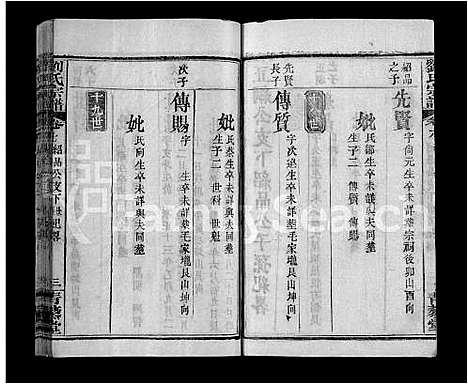 劉氏宗譜
紹品之子
先賢
字尚元生卒未詳葬宗祠後卯山酉向
妣
氏鄒生卒未詳與夫同塋
生子二 傳質 傳賜
先賢長子
傳質
字次逵生卒未詳葬毛家壠艮山坤向
妣
氏蔡生卒未詳與夫同塋
生子二 世科 世魁
次子
傳賜
字 生卒未詳葬毛家壠艮山坤向
妣
氏向生卒未詳與夫同塋
十九世
劉氏宗譜
卷
紹品公支下世紀畧
三
青藜堂
FamilySearch